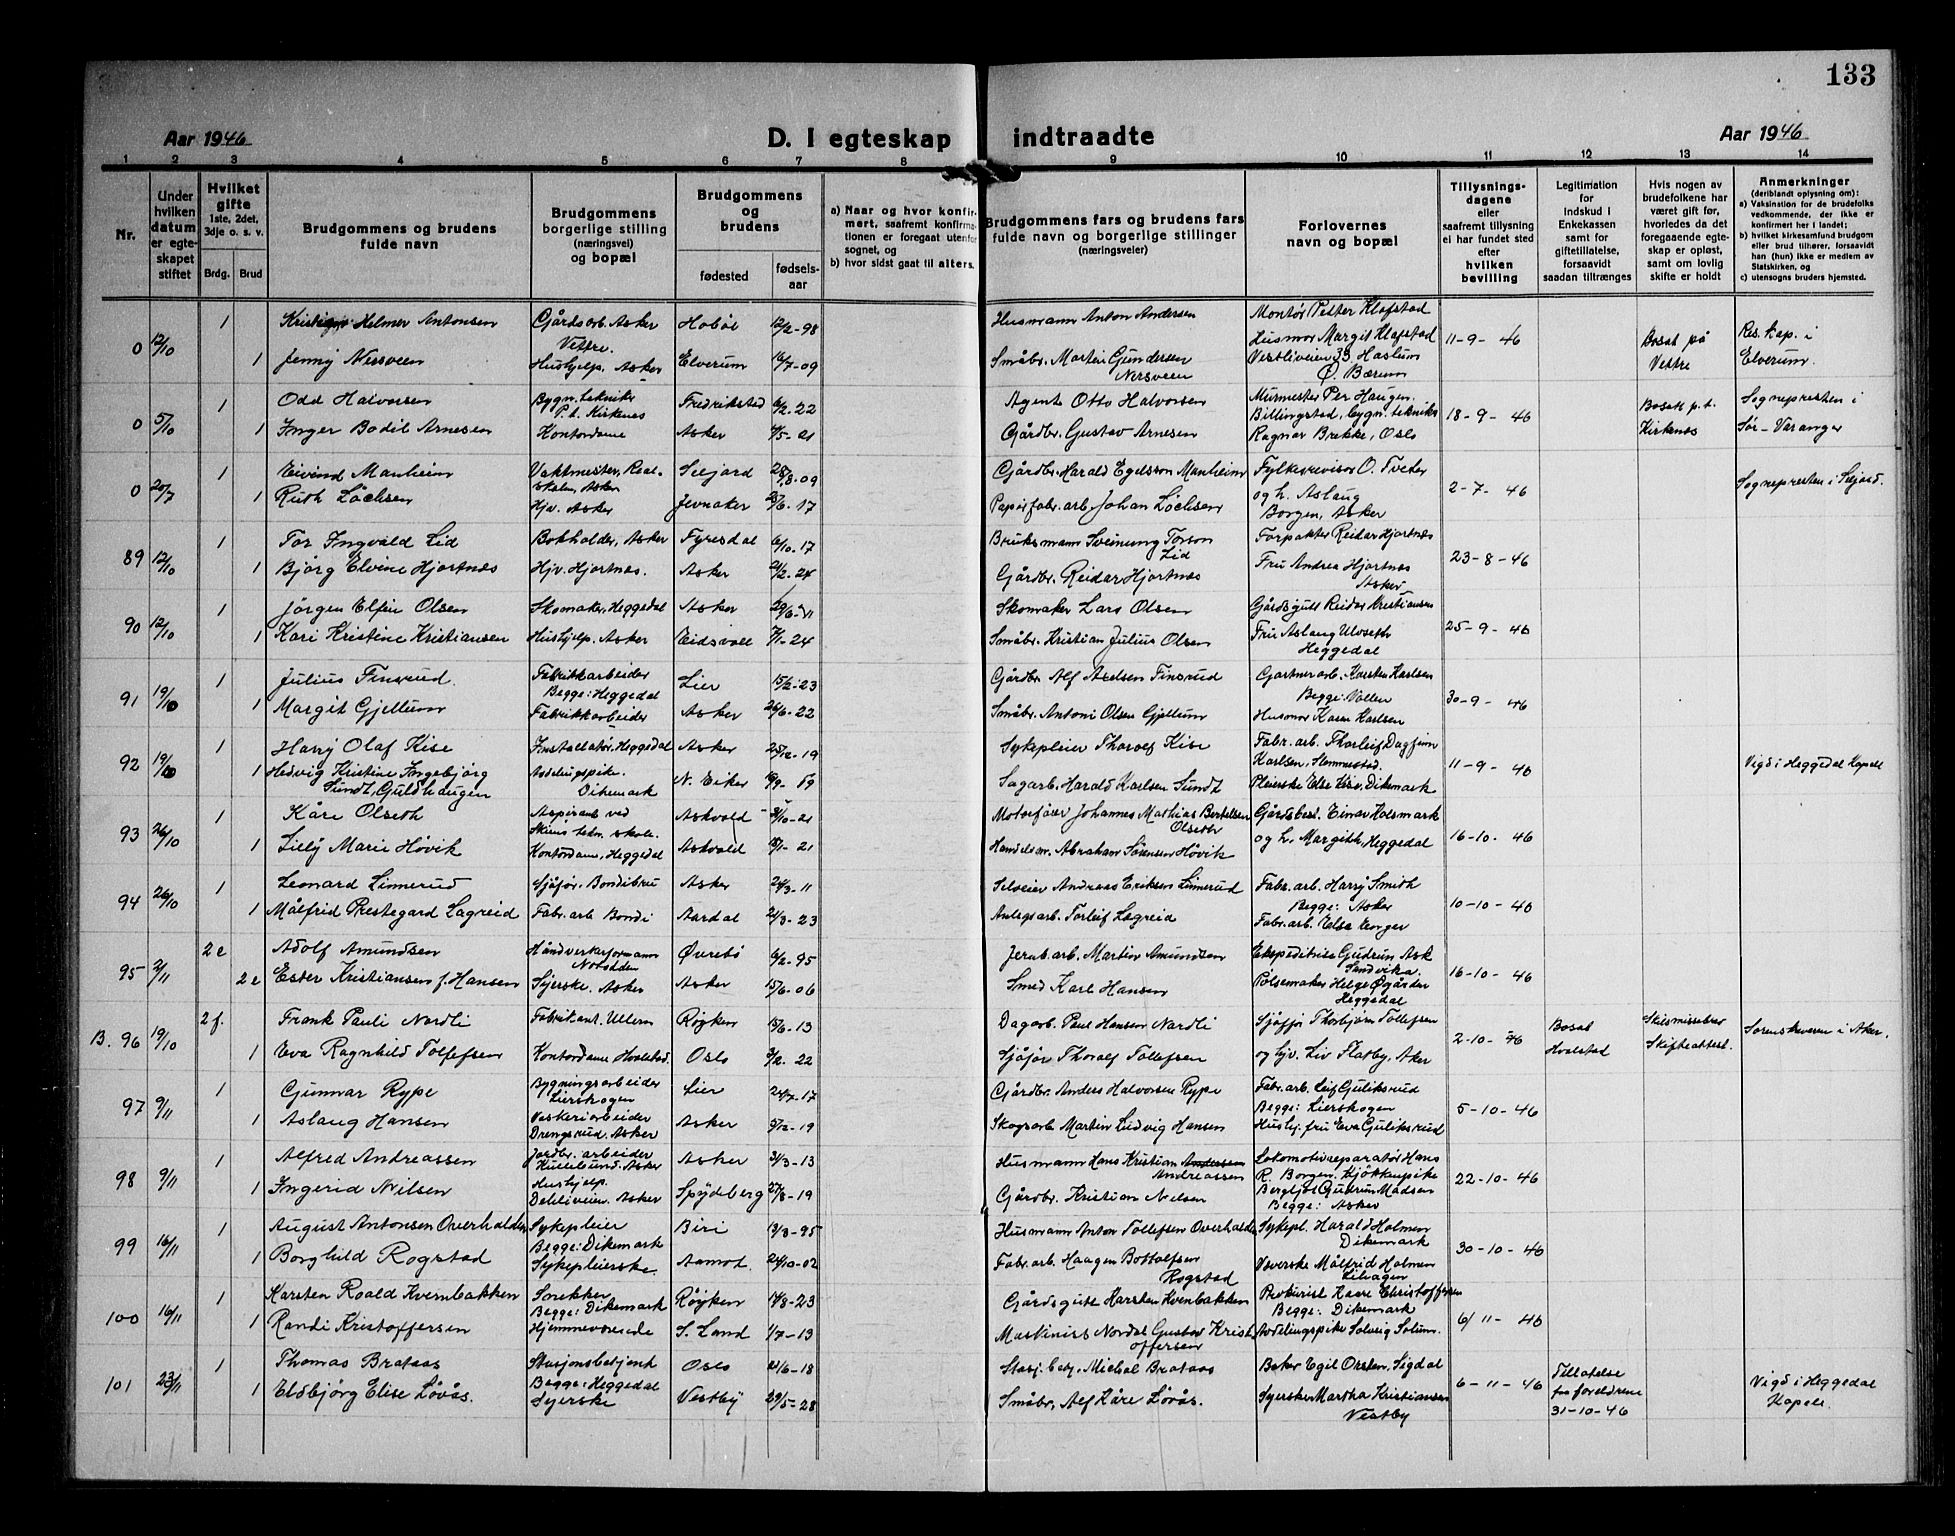 133
Aar 1946
D. I egteskap indtraadte
Aar 1946
1 2 3 4 5 6 7 8 9 10 11 12 13 14
Nr.
Under hvilken datum er egteskapet stiftet
Hvilket gifte
1ste, 2det, 3dje o. s. v.
Brdg. Brud
Brudgommens og brudens fulde navn
Brudgommens borgerlige stilling (næringsvei) og bopæl
Brudgommens og brudens
fødested
fødselsaar
a) Naar og hvor konfirmert, saafremt konfirmationen er foregaat utenfor sognet, og
b) hvor sidst gaat til alters.
Brudgommens fars og brudens fars fulde navn og borgerlige stillinger (næringsveier)
Forlovernes navn og bopæl
Tillysningsdagene eller saafremt tillysning ei har fundet sted efter hvilken bevilling
Legitimation for Indskud i Enkekassen samt for giftetillatelse, forsaavidt saadan tiltrænges
Hvis nogen av brudefolkene har været gift før, hvorledes da det foregaaende egteskap er opløst, samt om lovlig skifte er holdt
Anmerkninger (deriblandt oplysning om):
a) Vaksination for de brudefolks vedkommende, der ikke er konfirmert her i landet;
b) hvilket kirkesamfund brudgom eller brud tilhører, forsaavidt han (hun) ikke er medlem av Statskirken, og
c) utensogns bruders hjemsted.
0 12/10 1 Helmer Antonsen Gårdsarb. Asker Vettre. Hobøl 12/2-98 Husmann Anton Andersen Montør Petter Klafstad
1 Jenny Nersveen Hushjelp, Asker Elverum 16/7-09 Småbr. Martin Gundersen Nersveen Husmor Margit Klafstad Vestliveien 33 Haslum Ø. Bærum 11-9-46 Bosatt på Vettre Res. kap. i Elverum.
0 5/10 1 Odd Halvorsen Bygn. tekniker P.t. Kirkenes Fredrikstad 6/2-22 Agent Otto Halvorsen Murmester Per Haugen,
1 Inger Bodil Arnesen Kontordame Asker 4/5-21 Gårdbr. Gustav Arnesen Billingstad, bygn. tekniker Ragnar Brekke, Oslo 18-9-46 Bosatt p.t. Kirkenes Sognepresten i Sør-Varanger
0 20/7 1 Eivind Manheim Vaktmester, Realskolen, Asker Seljord 28/8-09 Gårdbr. Harald Egelsson Manheim Fylkesrevisor O. Tveter
1 Ruth Løchsen Hjv. Asker Jevnaker 23/6-17 Papirfabr. arb. Johan Løchsen og h. Aslaug Borgen, Asker 2-7-46 Sognepresten i Seljord.
89 12/10 1 Tor Ingvald Lid Bokholder, Asker Fyresdal 6/10-17 Bruksmann Sveinung Torson Lid Forpakter Reidar Hjortnæs
1 Bjørg Elvine Hjortnæs Hjv. Hjortnæs. Asker 21/2-24 Gårdbr. Reidar Hjortnæs Fru Andrea Hjortnæs Asker 23-8-46
90 12/10 1 Jørgen Elfin Olsen Skomaker, Heggedal Asker Skomaker Lars Olsen Gårdsgutt Reidar Kristiansen
1 Kari Kristine Kristiansen Hushjelp. Asker Eidsvoll 7/1-24 Småbr. Kristian Julius Olsen Fru Aslaug Ulvseth Heggedal 25-9-46
91 19/10 1 Julius Finsrud. Fabrikkarbeider Begge: Heggedal Lier 15/2-23 Gårdbr. Alf Axelsen Finsrud Gartnerarb. Karsten Karlsen
1 Margit Gjellum Fabrikkarbeider Asker 26/6-22 Småbr. Antoni Olsen Gjellum Begge: Vollen Husmor Karen Karlsen 30-9-46
92 19/10 1 Harry Olaf Kise Installatør, Heggedal Asker 25/12-19 Sykepleier Thorolf Kise Fabr. arb. Thorleif Dagfinn
1 Hedvig Kristine Ingebjørg Sundt, Guldhaugen Avdelingspike. Dikemark N. Eiker Sagarb. Harald Karlsen Sundt Karlsen, Slemmestad. Pleierske Else Kise, Dikemark 11-9-46 Vigd i Heggedal Kapell
93 26/10 1 Kåre Olseth Aspirant ved Skiens tekn. skole. Askvold 3/10-21 Motorfører Johannes Mathias Bertelsen Olseth Gårdsbest. Einar Holsmark
1 Lilly Marie Høvik Kontordame, Heggedal Askvold 15/1-21 Handelsm. Abraham Sørensen Høvik og h. Margitt, Heggedal 16-10-46
94 26/10 1 Leonard Linnerud Sjåfør. Bondibru Asker 24/3-11 Selveier Andreas Eriksen Linnerud Fabr. arb. Harry Smith
1 Målfrid Prestegard Lagreid Fabr. arb Bondi Aardal 21/3-23 Anlegsarb. Torleif Lagreid Begge: Asker Fabr. arb. 10-10-46
95 2/11 2e Adolf Amundsen Håndverkerformann Notodden Øvrebø 6/2-95 Jernarb. Martin Amundsen Ekspeditrise Gudrun Ask Sandvika.
2e Ester Kristiansen f. Hansen Syerske. Asker Asker 15/6-06 Smed Karl Hansen Pølsemaker Helge Øgården Heggedal 16-10-46
B. 96 19/10 2 f. Frank Pauli Nordli Fabrikant. Ullern Røyken 15/6-13 Dagarb. Paul Hansen Nordli Sjåfør Thorbjørn Tollefsen
1 Eva Ragnhild Tollefsen Kontordame Hvalstad. Oslo 3/2-22 Sjåfør Thorolf Tollefsen og hjv. Liv Flatby, Aker 2-10-46 Bosat Hvalstad Skilsmissebev. Skifteattest. Sorenskriveren i Aker.
97 9/11 1 Gunnar Rype Bygningsarbeider Lierskogen Lier 24/7-17 Gårdbr. Anders Halvorsen Rype Fabr. arb. Leif Guliksrud
1 Aslaug Hansen Vaskeriarbeider Drengsrud, Asker Asker 5/12-19 Skogsarb Martin Ludvig Hansen Begge: Lierskogen Hushj. fru Eva Guliksrud 5-10-46
98 9/11 1 Alfred Andreassen Jordbr. arbeider Asker Asker 31/3-13 Husmann Hans Kristian Andersen Andreassen Lokomotivreparatør Hans
1 Ingerid Nilsen Hushjelp. Asker Spydeberg 27/8-19 Gårdbr. Kristian Nilsen R. Borgen. Kjøkkenpike Bergljot Gudrun Madsen Begge: Asker 22-10-46
99 16/11 1 August Antonsen Overhalden Sykepleier Biri 13/3-95 Husmann Anton Tollefsen Overhalden Sykepl. Harald Holmen Dikemark
1 Borghild Rogstad Begge: Dikemark Sykepleierske. Aamot. 24/10-02 Fabr. arb. Haagen Bottolfsen Rogstad Væverske Målfrid Holmen 30-10-46
100 16/11 1 Karsten Roald Kvernbakken Snekker Begge: Dikemark Røyken 14/8-23 Gårdsgutt Karsten Kvenbakken Prokurist Kaare Christoffersen
1 Randi Kristoffersen Hjemmeværende S. Land 1/7-13 Maskinist Nordal Gustav Kristoffersen Begge: Dikemark Avdelingspike Solveig Solum. 6/11-46
101 23/11 1 Thomas Brataas Stasjonsbetjent Begge: Heggedal Oslo 21/6-18 Stasj. betj. Michal Brataas Baker Egil Orsten, Sigdal
1 Elsbjørg Elise Løvås. Syerske Vestby 29/5-28 Småbr. Alf Kåre Løvås. Syerske Martha Kristiansen Vestby 6-11-46 Tillatelse fra foreldrene 31-10-46 Vigd i Heggedal Kapell.